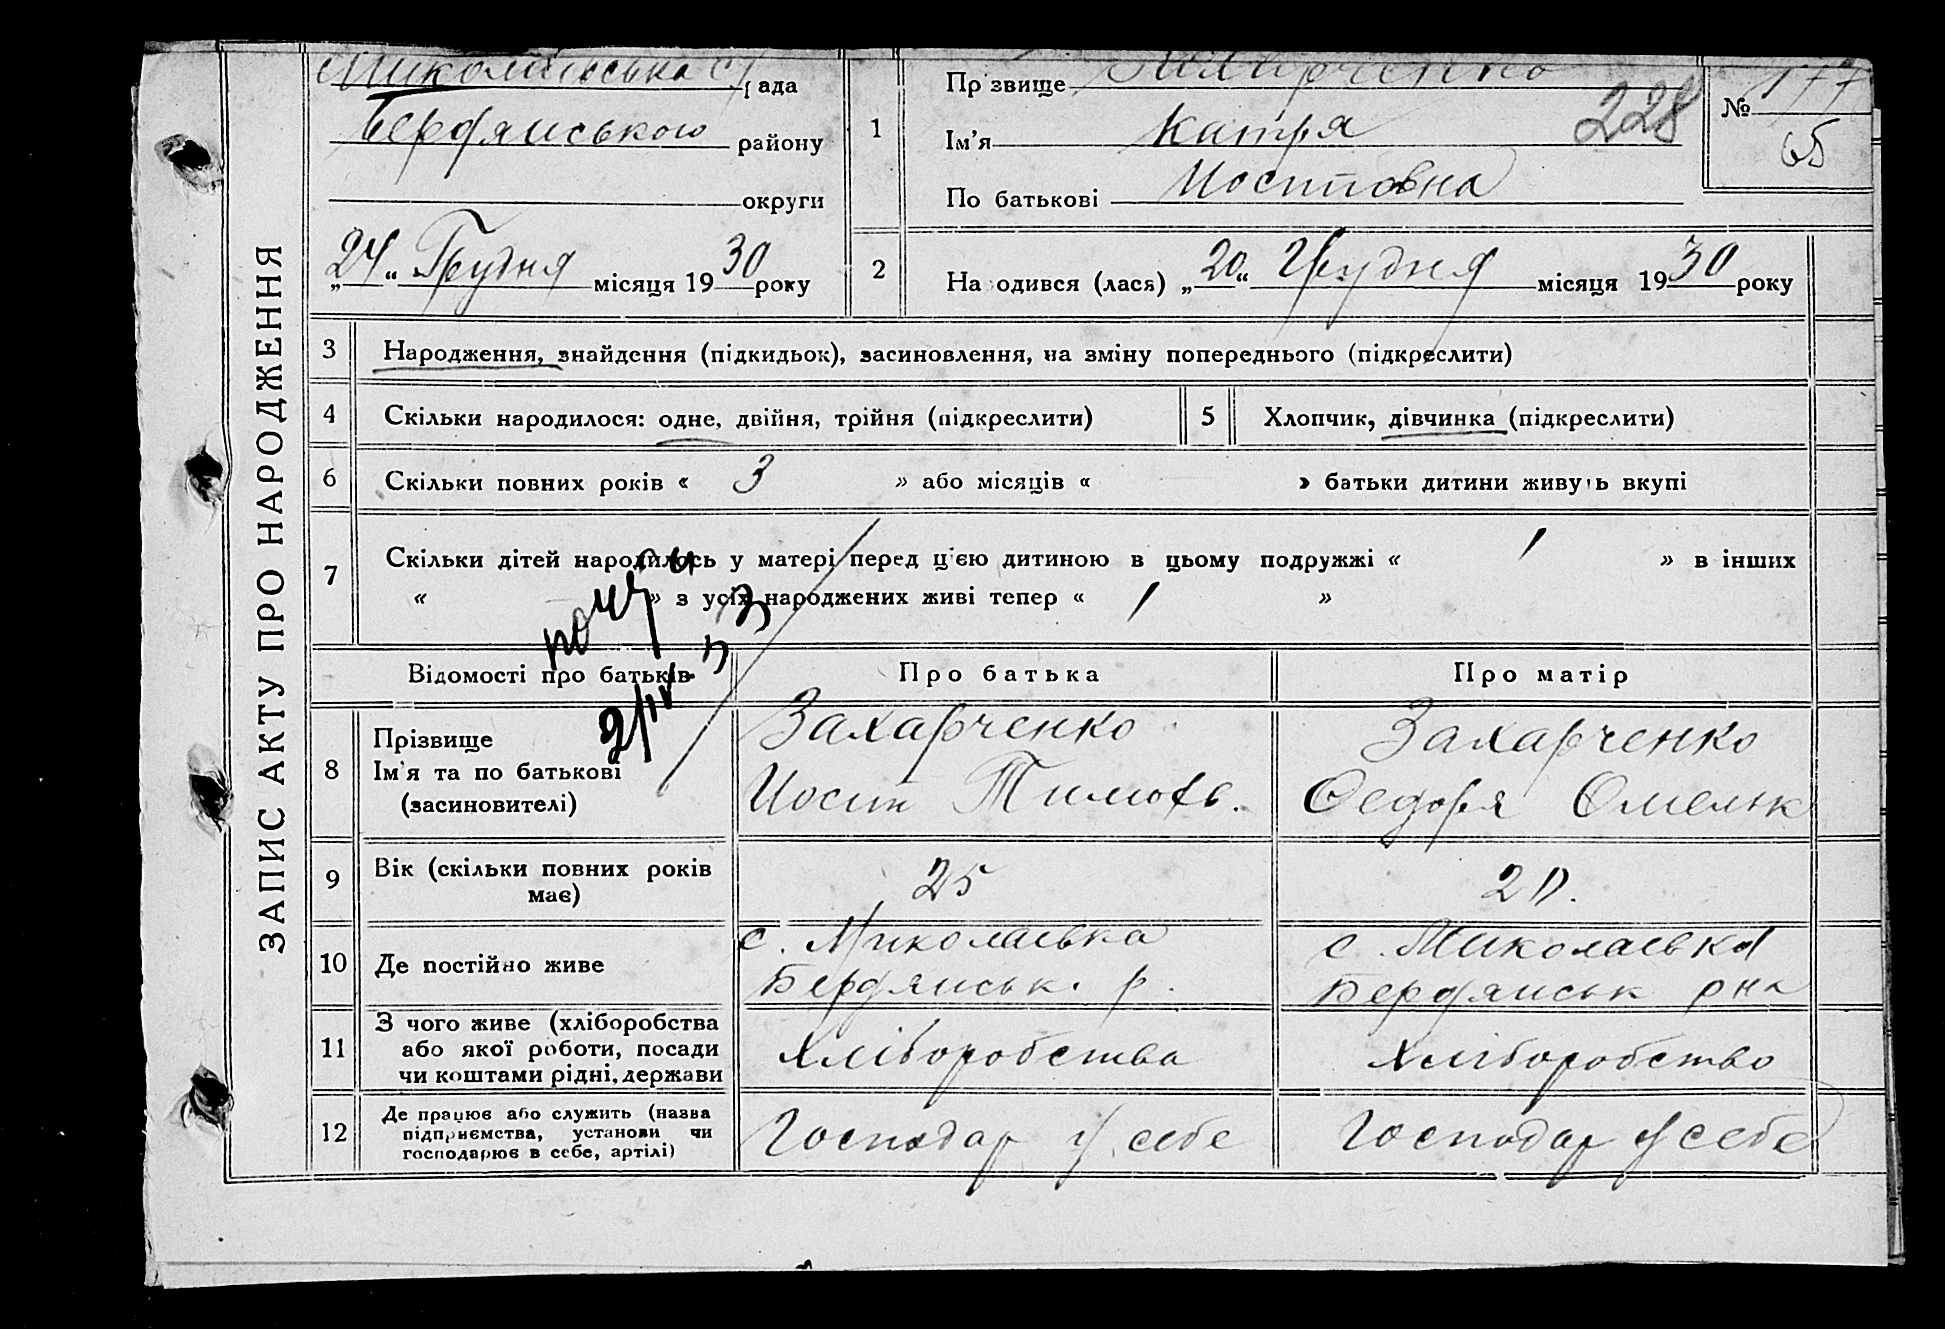 ЗАПИС АКТУ ПРО НАРОДЖЕННЯ
Миколаївська с/рада
Бердянського району
округи
„24“ Грудня місяця 1930 року
1
Прізвище Захарченко
Ім'я Катря
По батькові Иосиповна
228
№ 177
65
2
Народився (лася) „20“ Грудня місяця 1930 року
3 Народження, знайдення (підкидьок), засиновлення, на зміну попереднього (підкреслити)
4 Скільки народилося: одне, двійня, трійня (підкреслити)
5 Хлопчик, дівчинка (підкреслити)
6 Скільки повних років « 3 » або місяців « » батьки дитини живуть вкупі
7 Скільки дітей народилось у матері перед цією дитиною в цьому подружжі « 1 » в інших
« » з усіх народжених живі тепер « 1 »
Відомості про батьків
Про батька
Про матір
8 Прізвище
Ім'я та по батькові
(засиновителі)
Захарченко
Иосип Тимофь.
Захарченко
Федора Омельк
9 Вік (скільки повних років
має)
25
20.
10 Де постійно живе
с. Миколаївка
Бердянськ. р.
с. Миколаївка
Бердянськ рна
11 З чого живе (хліборобства
або якої роботи, посади
чи коштами рідні, держави
Хліборобства
Хліборобство
12 Де працює або служить (назва
підприємства, установи чи
господарює в себе, артілі)
Господар у себе
Господар у себе